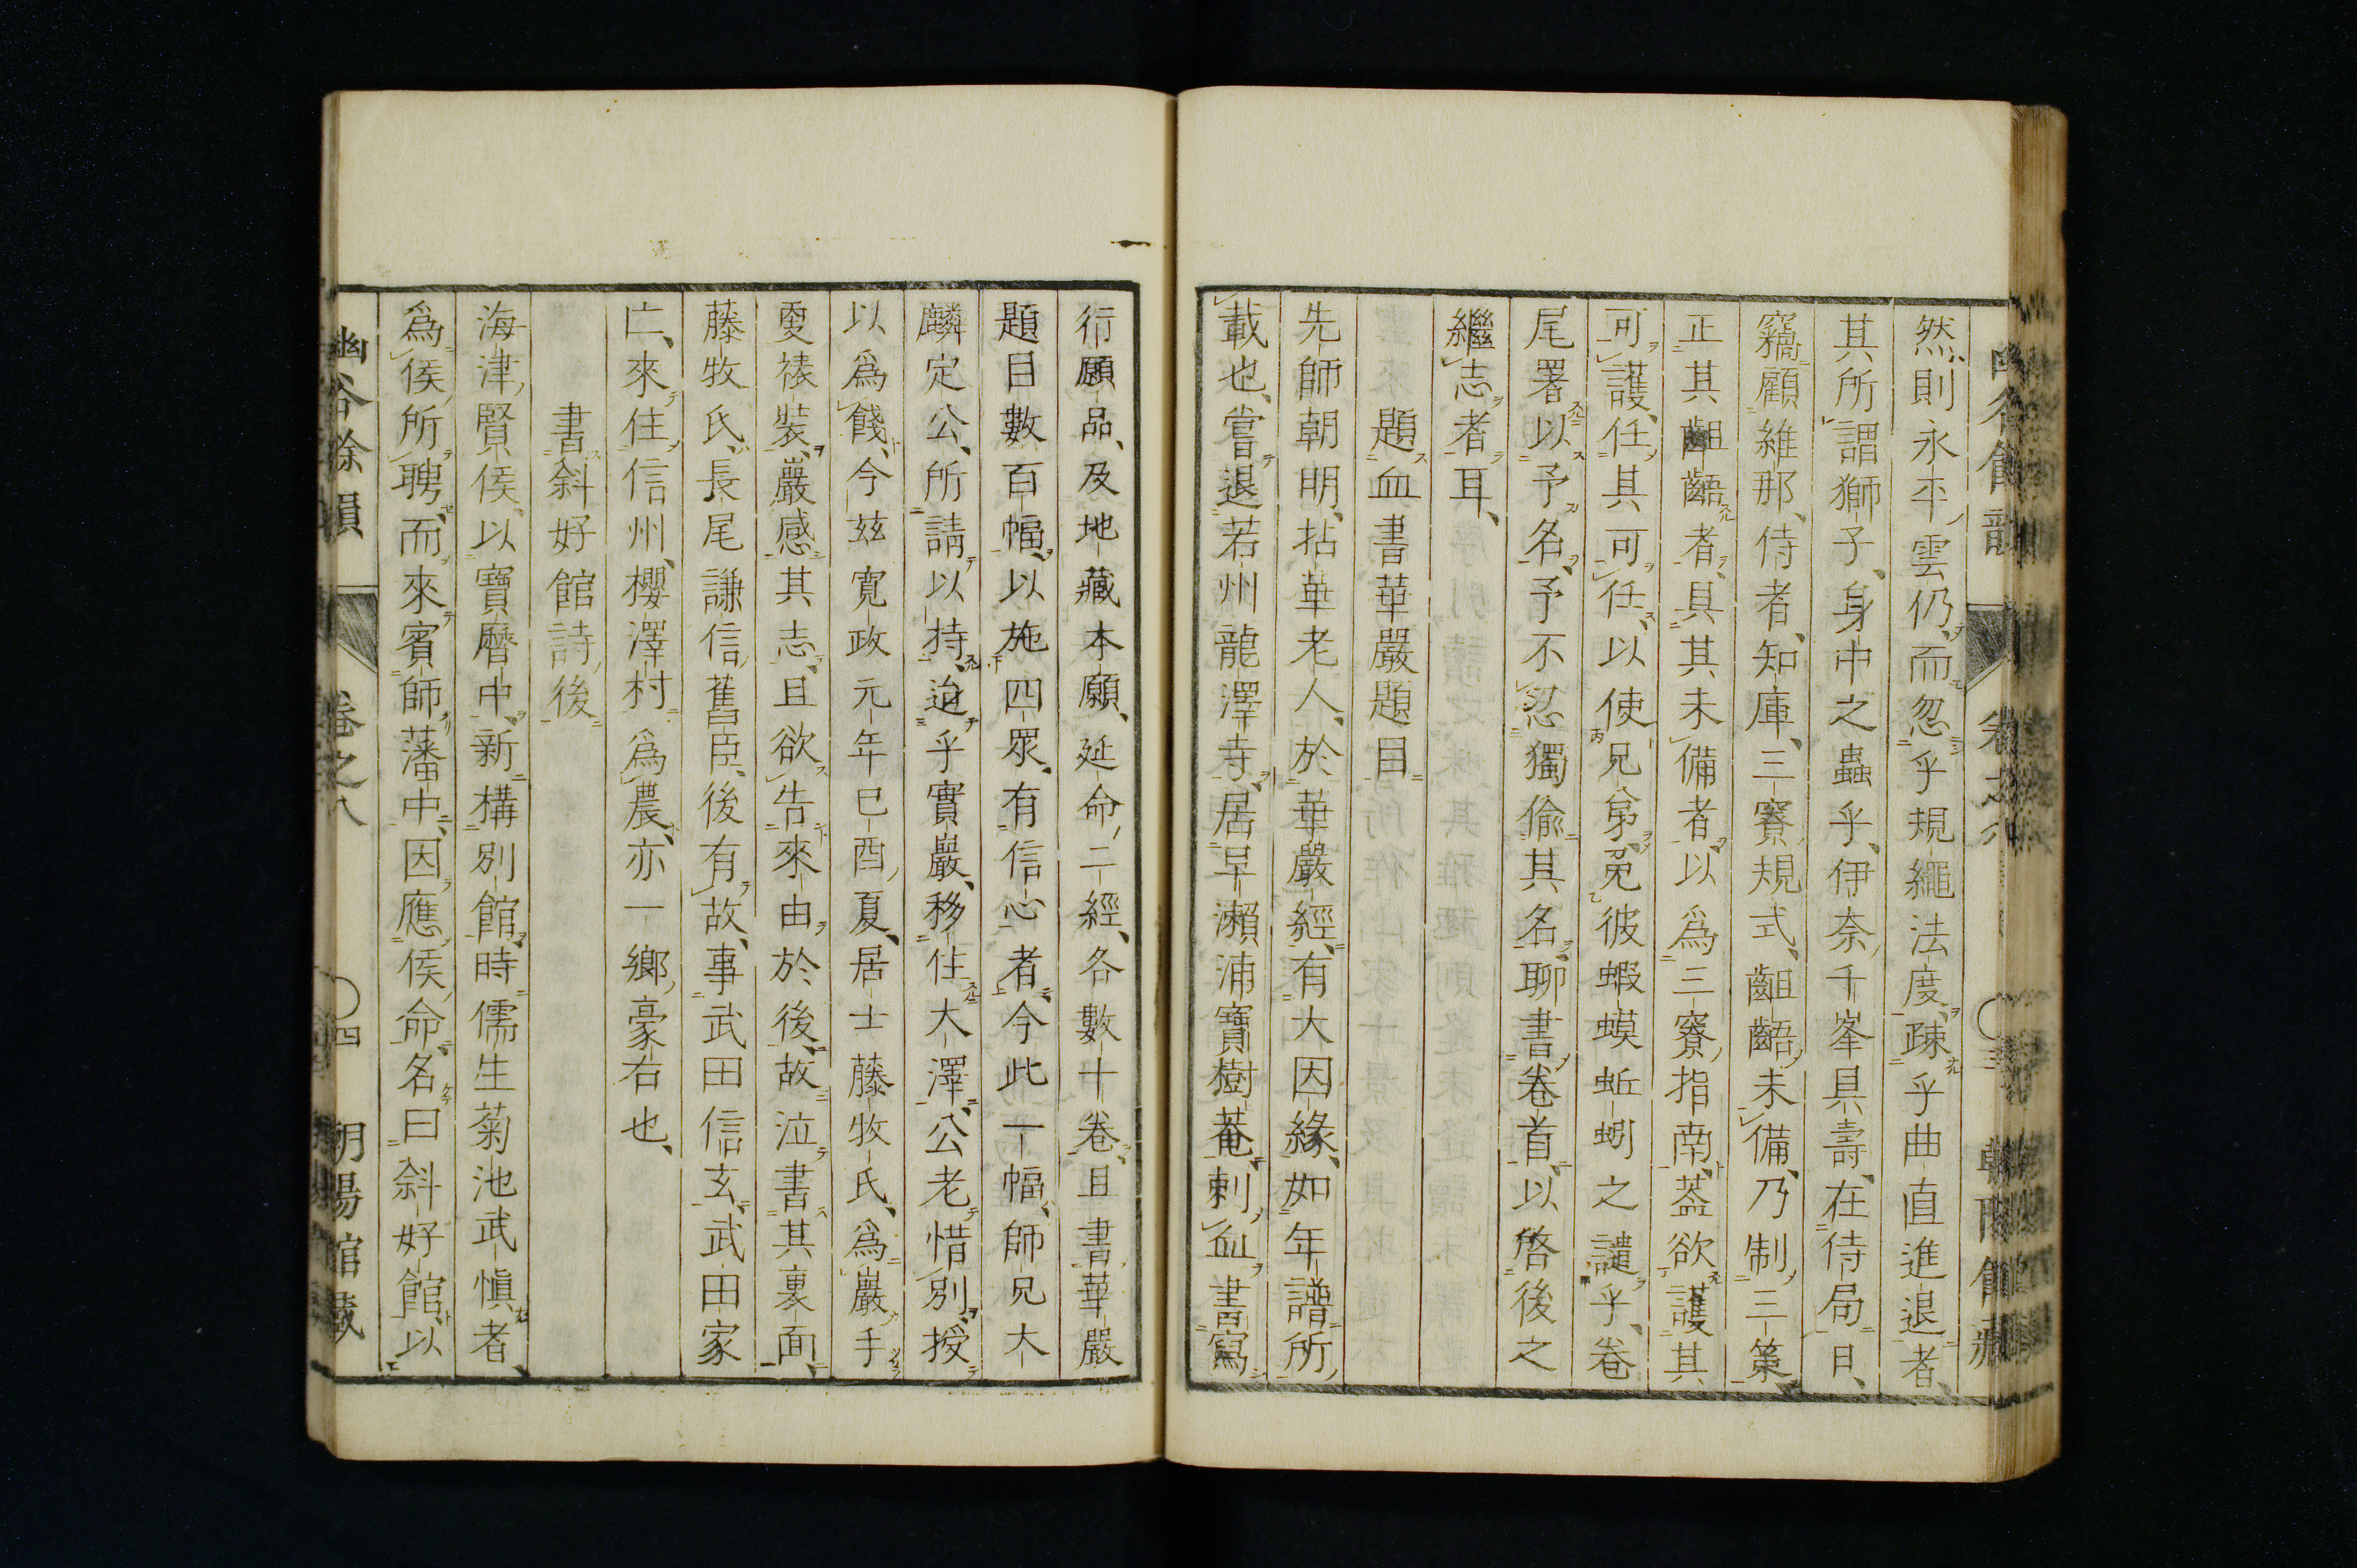 然則永平雲仍、而忽乎規繩法度、疎乎曲直進退者、
其所謂獅子、身中之蟲乎、伊奈千峯具壽、在侍局日、
竊顧維那、侍者、知庫、三寮規式、齟齬未備、乃制三策、
正其齟齬者、具其未備者、以爲三寮指南、蓋欲護其
可護、任其可任、以使兄弟免彼蝦蟆蚯蚓之譴乎、卷
尾署以予名、予不忍獨偷其名、聊書卷首、以啓後之
繼志者耳、
題血書華嚴題目
先師朝明、拈華老人、於華嚴經、有大因緣、如年譜所
載也、嘗退若州龍澤寺、居早瀨浦寶樹菴、刺血書寫
行願品、及地藏本願、延命二經、各數十卷、且書華嚴
題目數百幅、以施四眾、有信心者、今此一幅、師兄大
麟定公、所請以持、迨乎實巖、移住大澤、公老惜別、授
以爲餞、今玆寛政元年巳酉夏、居士藤牧氏、爲巖手
更裱裝、巖感其志、且欲告來由於後、故泣書其裏面、
藤牧氏、長尾謙信舊臣、後有故、事武田信玄、武田家
亡、來住信州、櫻澤村爲農、亦一鄉豪右也、
書斜好館詩後
海津賢侯、以寶曆中、新構別館、時儒生菊池武愼者、
爲侯所聘、而來賓師藩中、因應侯命、名曰斜好館、以
幽谷餘韻 卷之八 〇四 朝陽館藏